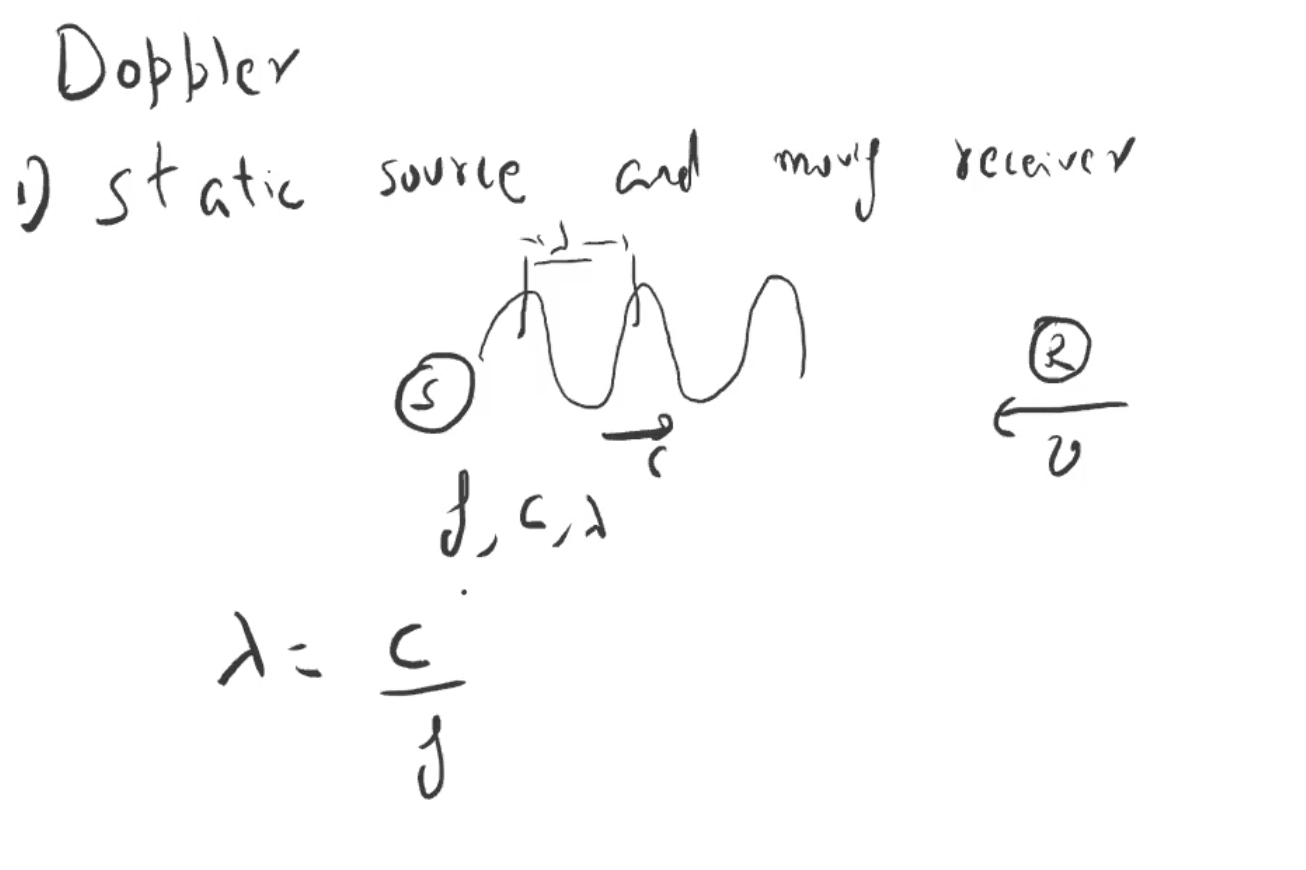 Doppler
1) static source and moving receiver
λ
S
R
c
v
f, c, λ
λ = c
f